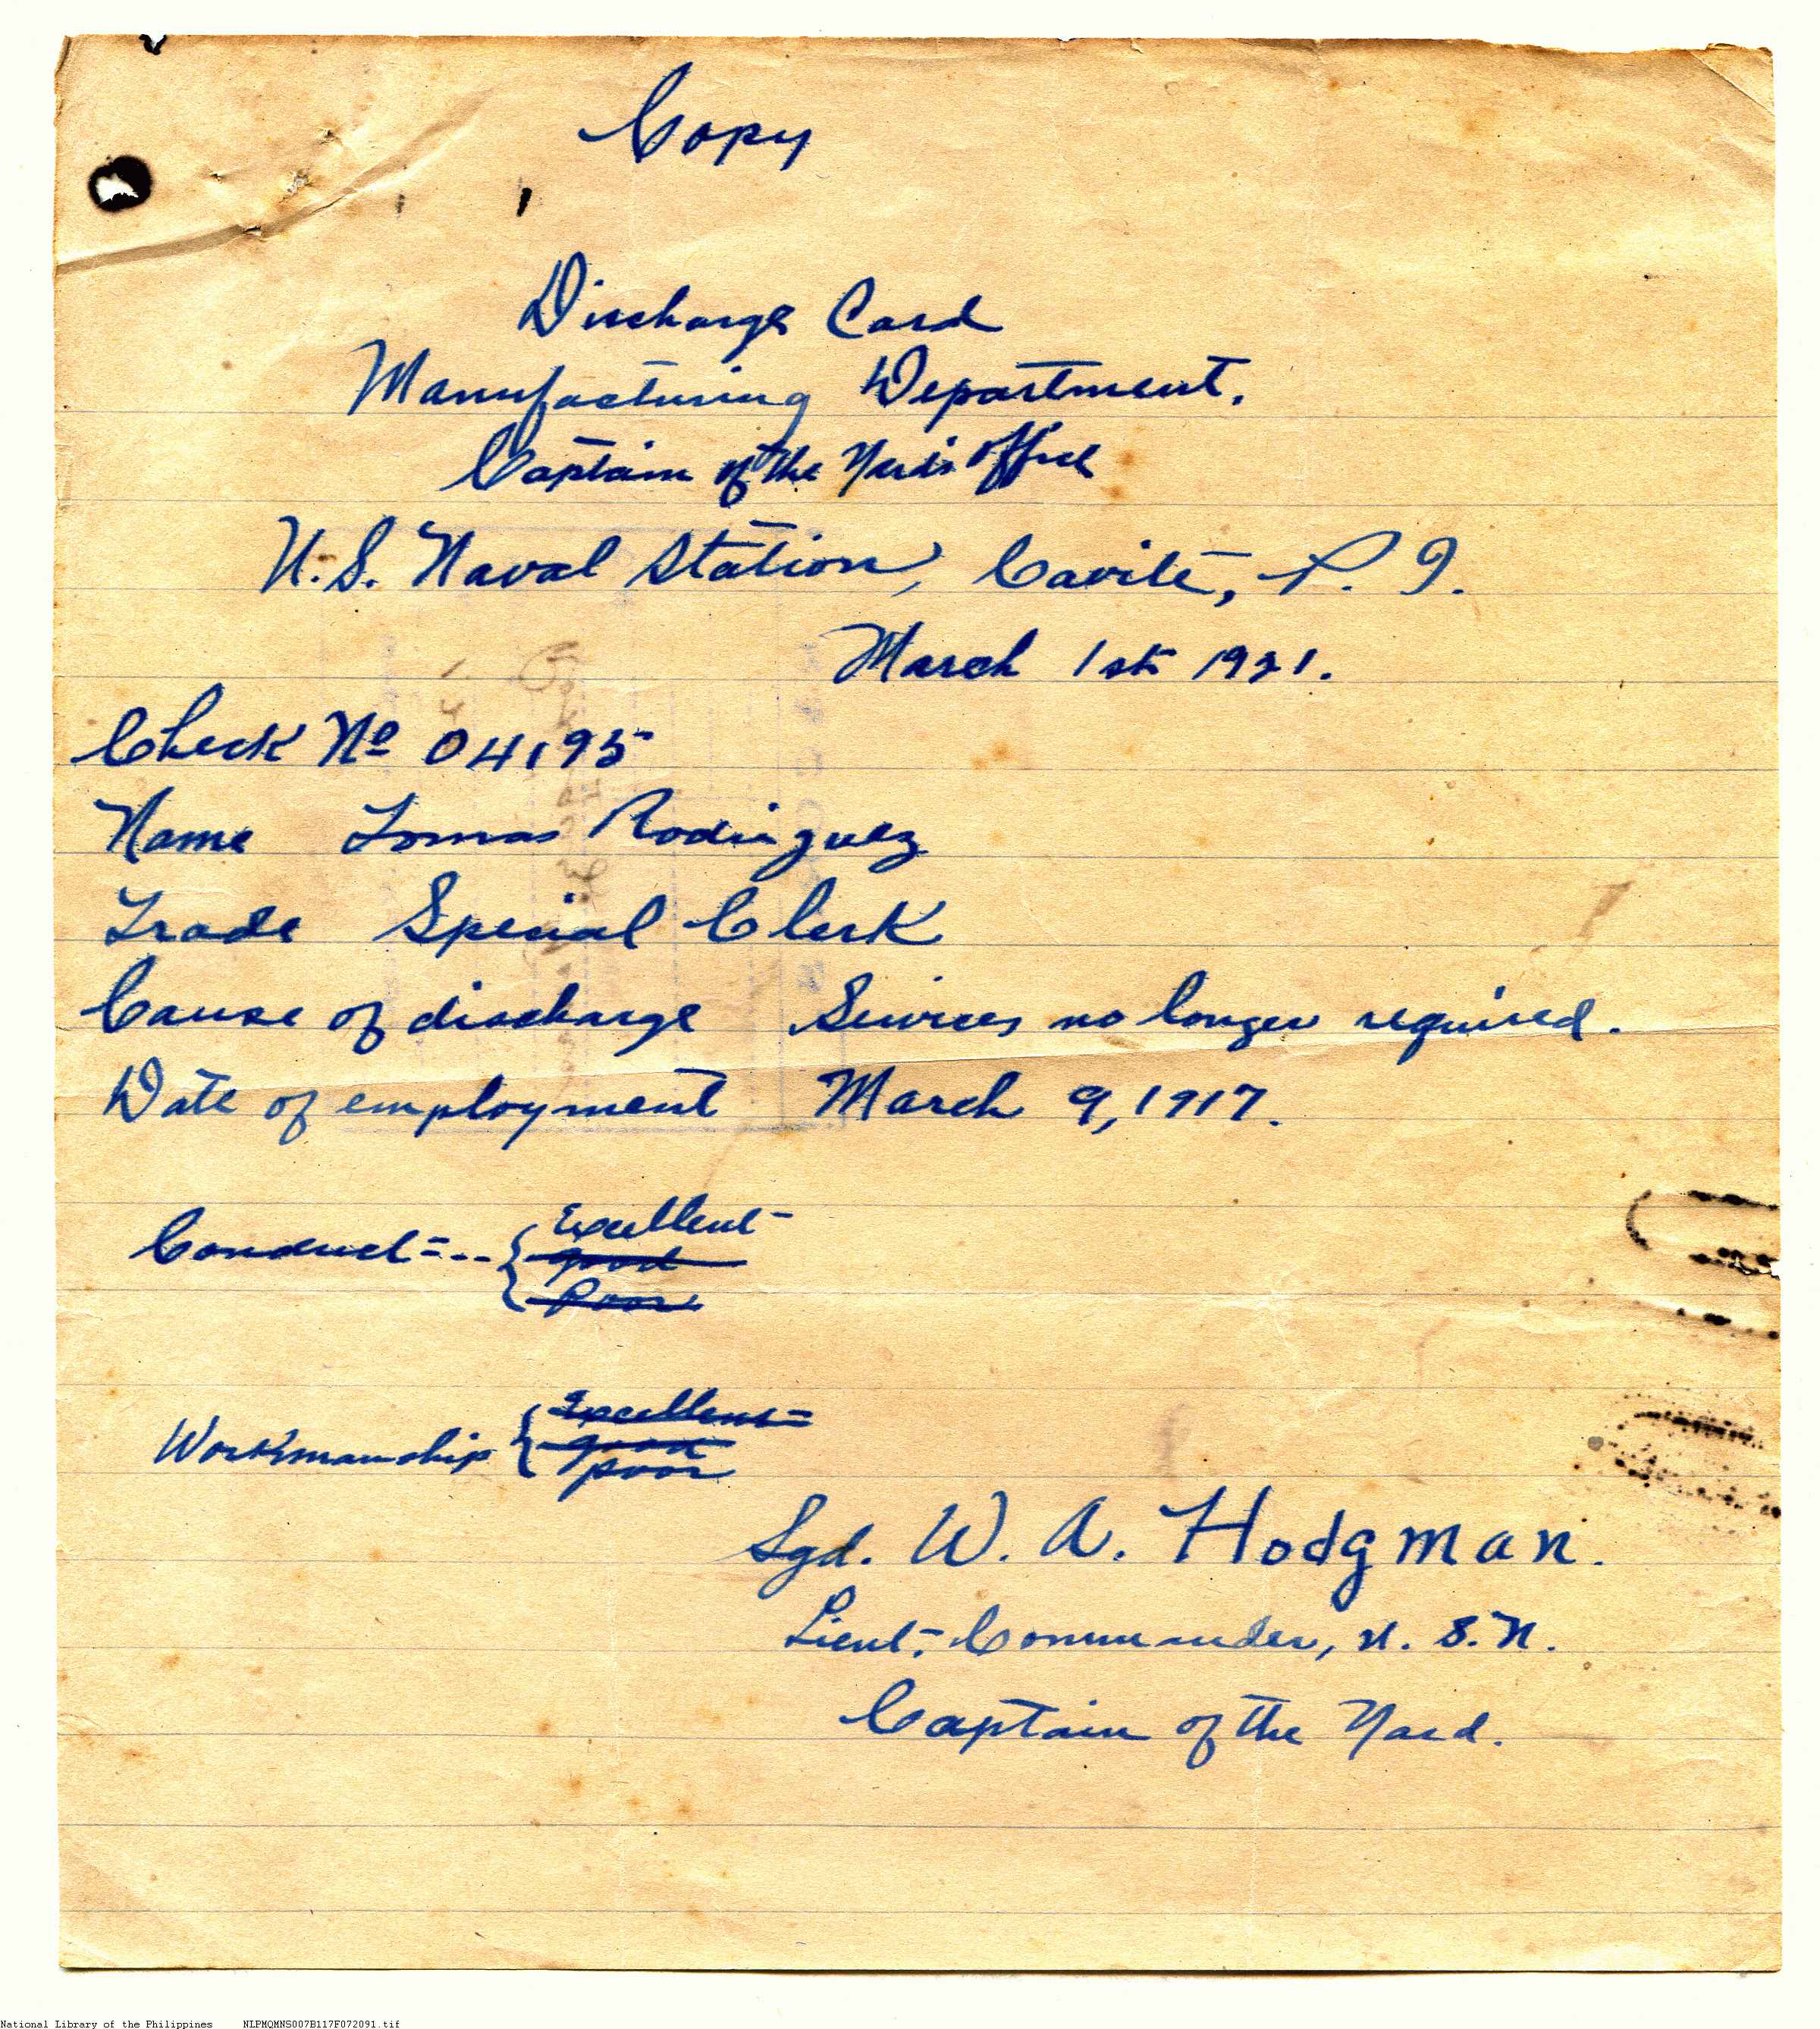 Copy
Discharge Card
Manufacturing Department.
Captain of the Yard's Office
U.S. Naval Station, Cavite, P. I.
March 1st 1921.
Check No 04195
Name Tomas Rodriguez
Trade Special Clerk
Cause of discharge Services no longer required.
Date of employment March 9, 1917.
Conduct -- { Excellent
good
Poor
Workmanship { Excellent
good
poor
Sgd. W. A. Hodgman.
Lieut. Commander, U. S. N.
Captain of the Yard.
National Library of the Philippines NLPMQMNS007B117F072091.tif